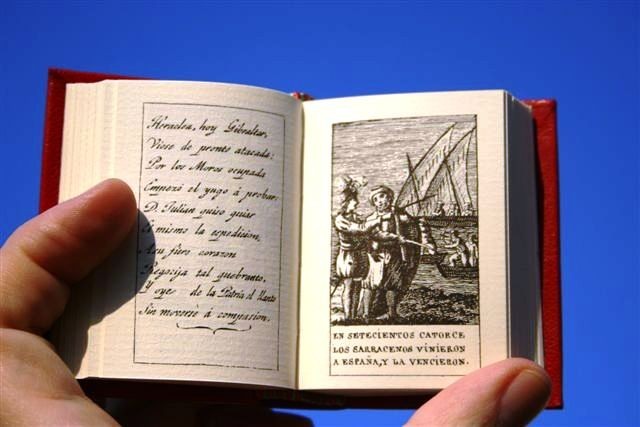 Heraclea, hoy Gibraltar,
Viose de pronto atacada:
Por los Moros ocupada
Empezó el yugo á probar.
D. Julian quiso guiar
El mismo la espedicion,
A su fiero corazon
Regocija tal quebranto,
Y oye de la Patria el llanto
Sin moverse á compasion.
EN SETECIENTOS CATORCE
LOS SARRACENOS VINIERON
A ESPAÑA, Y LA VENCIERON.